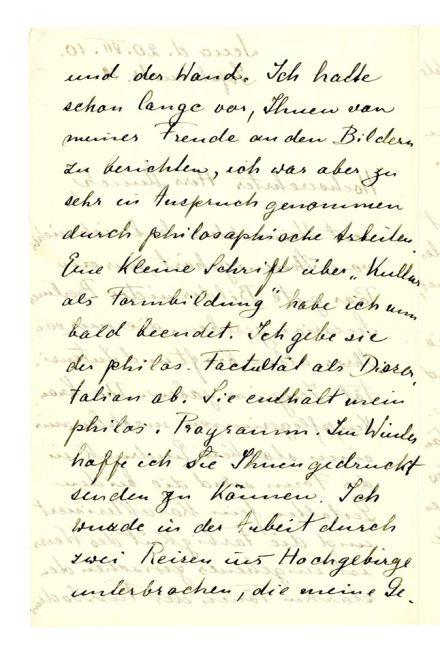 und der Wand. Ich hatte
schon lange vor, Ihnen von
meiner Freude an den Bildern
zu berichten, ich war aber zu
sehr in Anspruch genommen
durch philosophische Arbeiten.
Eine kleine Schrift über „Kultur
als Formbildung" habe ich nun
bald beendet. Ich gebe sie
der philos. Facultät als Disser-
tation ab. Sie enthält mein
philos. Programm. Im Winter
hoffe ich Sie Ihnen gedruckt
senden zu können. Ich
wurde in der Arbeit durch
zwei Reisen ins Hochgebirge
unterbrochen, die meine Ge-